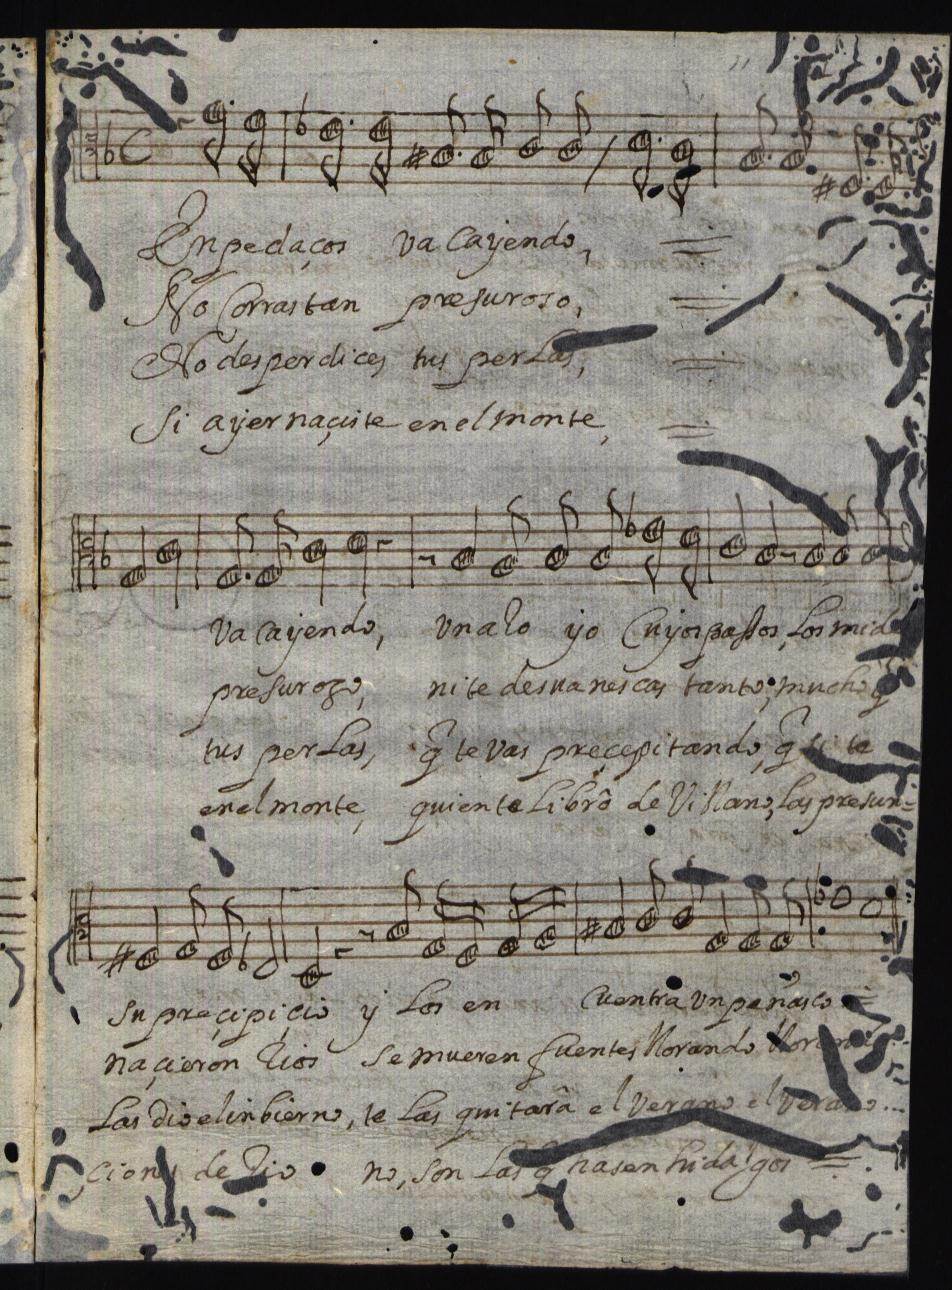 En pedaços va Cayendo,
No Corras tan presuroso,
No desperdices tus perlas,
Si ayer naçiste en el monte,
va Cayendo, un aro yo Cuyos passos, los mid
presurozo, ni te desvanescas tanto, mucho q̃
tus perlas, q̃ te vas preçepitando, q̃ si te
en el monte, quien te Librô de Villano, las presun=
Su preçipiçio y Los en Cuentra Un peñasco
naçieron Rios Se mueren fuentes llorando llorando
Las dio el inbierno, te Las quitarâ el Verano el Verano
çiones de Rio no, son Las q̃ hasen hidalgos